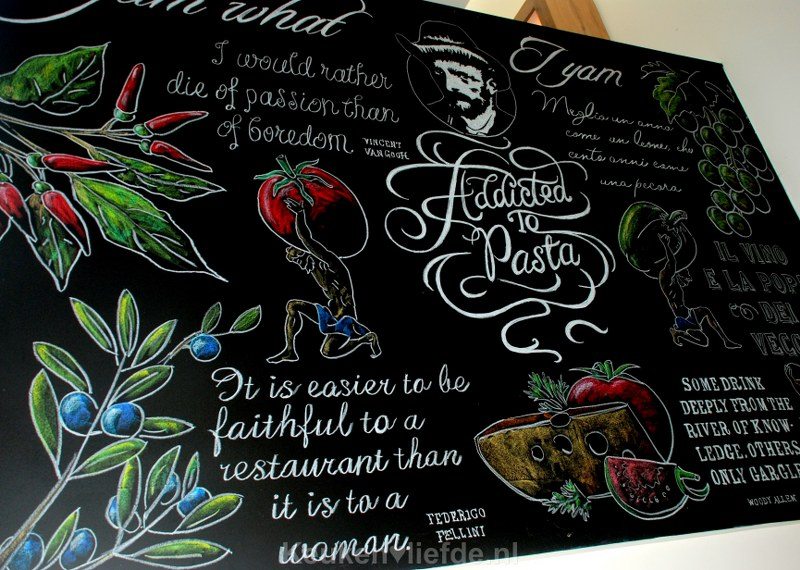 I am what
I yam
I would rather
die of passion than
of boredom
VINCENT
VAN GOGH
Addicted
To
Pasta
Meglio un anno
come un leone, che
cento anni come
una pecora
IL VINO
E LA
DEI
It is easier to be
faithful to a
restaurant than
it is to a
woman
FEDERICO
FELLINI
SOME DRINK
DEEPLY FROM THE
RIVER OF KNOW-
LEDGE. OTHERS
ONLY GARGLE
WOODY ALLEN
keukenliefde.nl